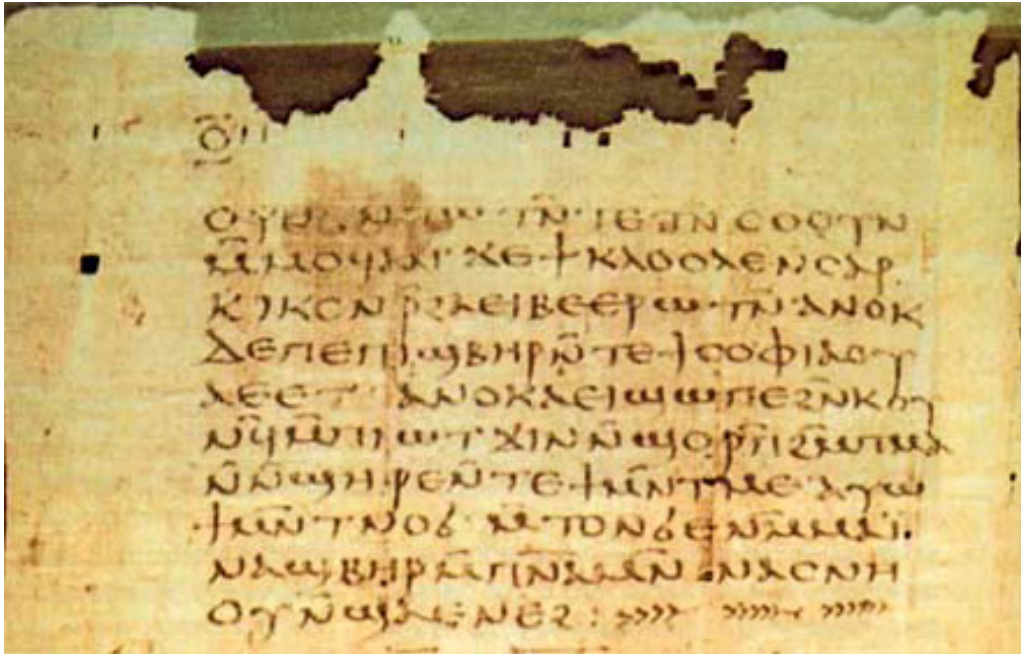 ⲟ̄
ⲟⲩⲉϩ ⲧⲛ̄ ⲧⲉⲧⲛ̄ⲥⲟⲟⲩⲛ
ⲙ̄ⲙⲟϥ ⲁⲛ ϫⲉ ϯⲕⲗⲟⲟⲗⲉ ⲛⲥⲁⲣ
ⲕⲓⲕⲏ ⲥⲣ̄ϩⲁⲉⲓⲃⲉ ⲉⲣⲱⲧⲛ̄ ⲁⲛⲟⲕ
ⲇⲉ ⲡⲉ ⲡⲓϣⲃⲏⲣ ⲛ̄ⲧⲉ ϯⲥⲟⲫⲓⲁ ⲟⲩ
ⲁⲉⲉⲧ ⲁⲛⲟⲕ ⲁⲉⲓϣⲱⲡⲉ ϩⲛ̄ ⲕⲟⲩ
ⲛϥ̄ ⲙ̄ⲡⲓⲱⲧ ϫⲓⲛ ⲛ̄ϣⲟⲣⲡ̄ ϩⲙ̄ ⲡⲙⲁ
ⲛ̄ⲛ̄ϣⲏⲣⲉ ⲛ̄ⲧⲉ ϯⲙⲛ̄ⲧⲙⲉ ⲁⲩⲱ
ϯⲙⲛ̄ⲧⲛⲟϭ ⲙ̄ⲧⲟⲛ ϭⲉ ⲛⲙ̄ⲙⲁⲓ·
ⲛⲁϣⲃⲏⲣ ⲙ̄ⲡⲛ̄ⲁ̄ ⲙⲛ̄ ⲛⲁⲥⲛⲏ
ⲟⲩ ⲛ̄ϣⲁⲉⲛⲉϩ : >>>> >>>>>> >>>>>